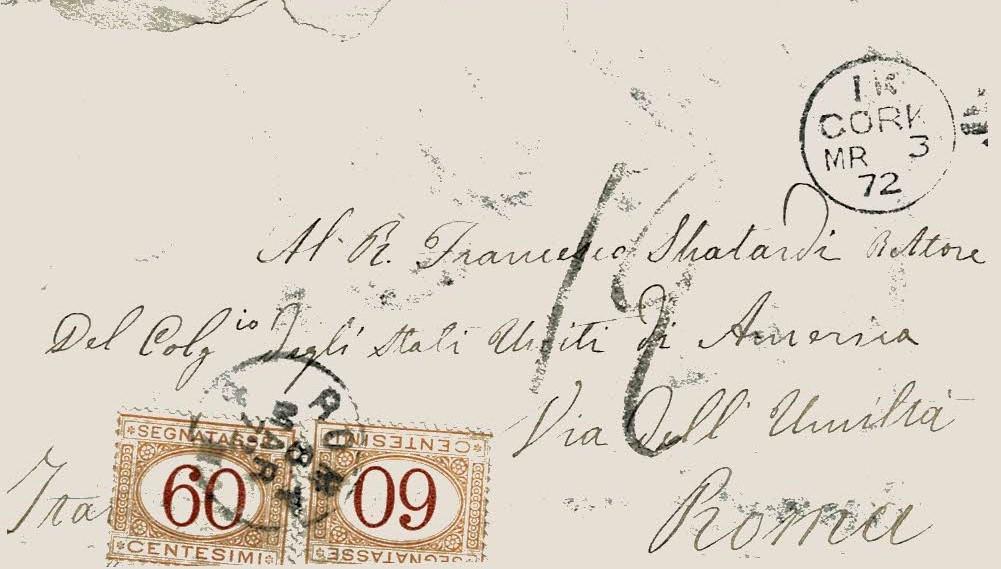 1K
CORK
MR 3
72
12
Al R. Francesco Shatardi Rettore
Del Colg io Degli Stati Uniti Di America
Via Dell' Umiltà
Roma
ROMA
8
MAR
SEGNATASSE
60
CENTESIMI
SEGNATASSE
60
CENTESIMI